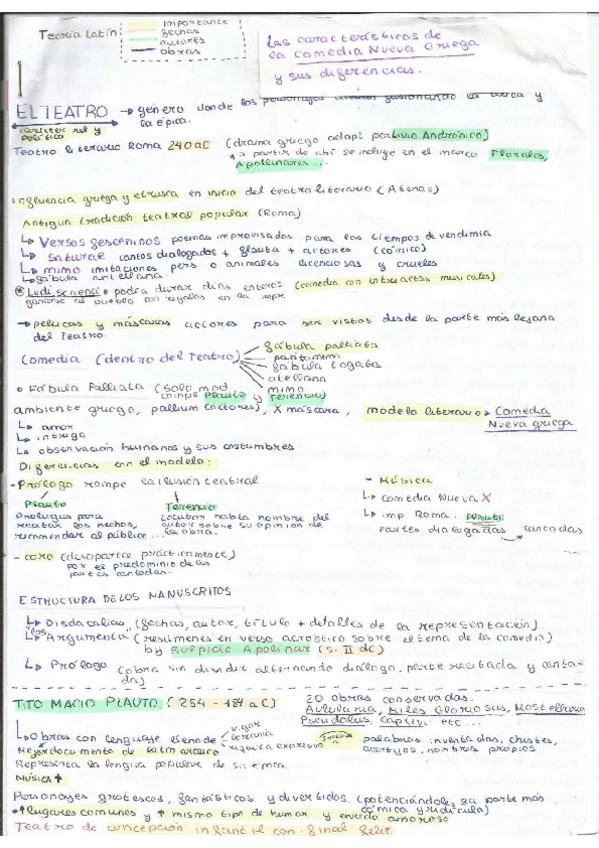 Teoría Latín:
importante
fechas
autores
obras
Las características de
la Comedia Nueva Griega
y sus diferencias.
EL TEATRO → género donde los personajes fusionando la lírica y
la épica.
carácter rel y
político
Teatro literario Roma 240 aC (drama griego adapt por Livio Andrónico)
a partir de ahí se incluye en el marco Florales,
Apollinares...
Influencia griega y etrusca en inicio del teatro literario (Atenas)
Antigua tradición teatral popular (Roma)
↳ Versos fesceninos poemas improvisados para los tiempos de vendimia
↳ Saturae cantos dialogados + flauta + actores (cómico)
↳ mimo imitaciones pers o animales licenciosas y crueles
↳ fábula atellana
Ludi scaenici podía durar días enteros (comedia con entreactos musicales)
ganarse al pueblo con regalos en la repr
→ pelucas y máscaras actores para ser vistos desde la parte más lejana
del teatro.
Comedia (dentro del Teatro)
fábula palliata
pantomima
fábula togata
atellana
mimo
o Fábula Palliata (solo mod
compe Plauto y Terencio)
ambiente griego, pallium (actores), X máscara, modelo literario → Comedia
Nueva griega
↳ amor
↳ intriga
↳ observación humanos y sus costumbres
Diferencias con el modelo:
- Prólogo rompe la ilusión teatral
Plauto
Prólogos para
relatar los hechos,
recomendar al público...
Terencio
Locutor habla nombre del
autor sobre su opinión de
la obra.
- Música
↳ Comedia Nueva X
↳ imp Roma. Plauto
Partes dialogadas cantadas
- coro (desaparece prácticamente)
por el predominio de las
partes cantadas.
ESTRUCTURA DE LOS MANUSCRITOS
↳ Disdacalias (fechas, autor, título + detalles de la representación)
↳ los "Argumenta" (resúmenes en verso acróstico sobre el tema de la comedia)
by Sulpicio Apolinar (s. II dc)
↳ Prólogo (obra sin dividir alternando diálogo, parte recitada y canta-
da)
TITO MACIO PLAUTO (254 - 184 aC)
20 obras conservadas.
Aulularia, Miles Gloriosus, Mostellaria
Pseudolus, Captivi etc...
↳ Obras con lenguaje lleno de
vigor
lozanía
riqueza expresiva
palabras inventadas, chistes,
acertijos, nombres propios
Mejor documento de latín arcaico
Representa la lengua popular de su época.
MÚSICA ↑
Personajes grotescos, fantásticos y divertidos. (potenciándoles su parte más
cómica y ridícula)
• ↑ lugares comunes y ↑ mismo tipo de humor y enredo amoroso
Teatro de concepción infantil con final feliz